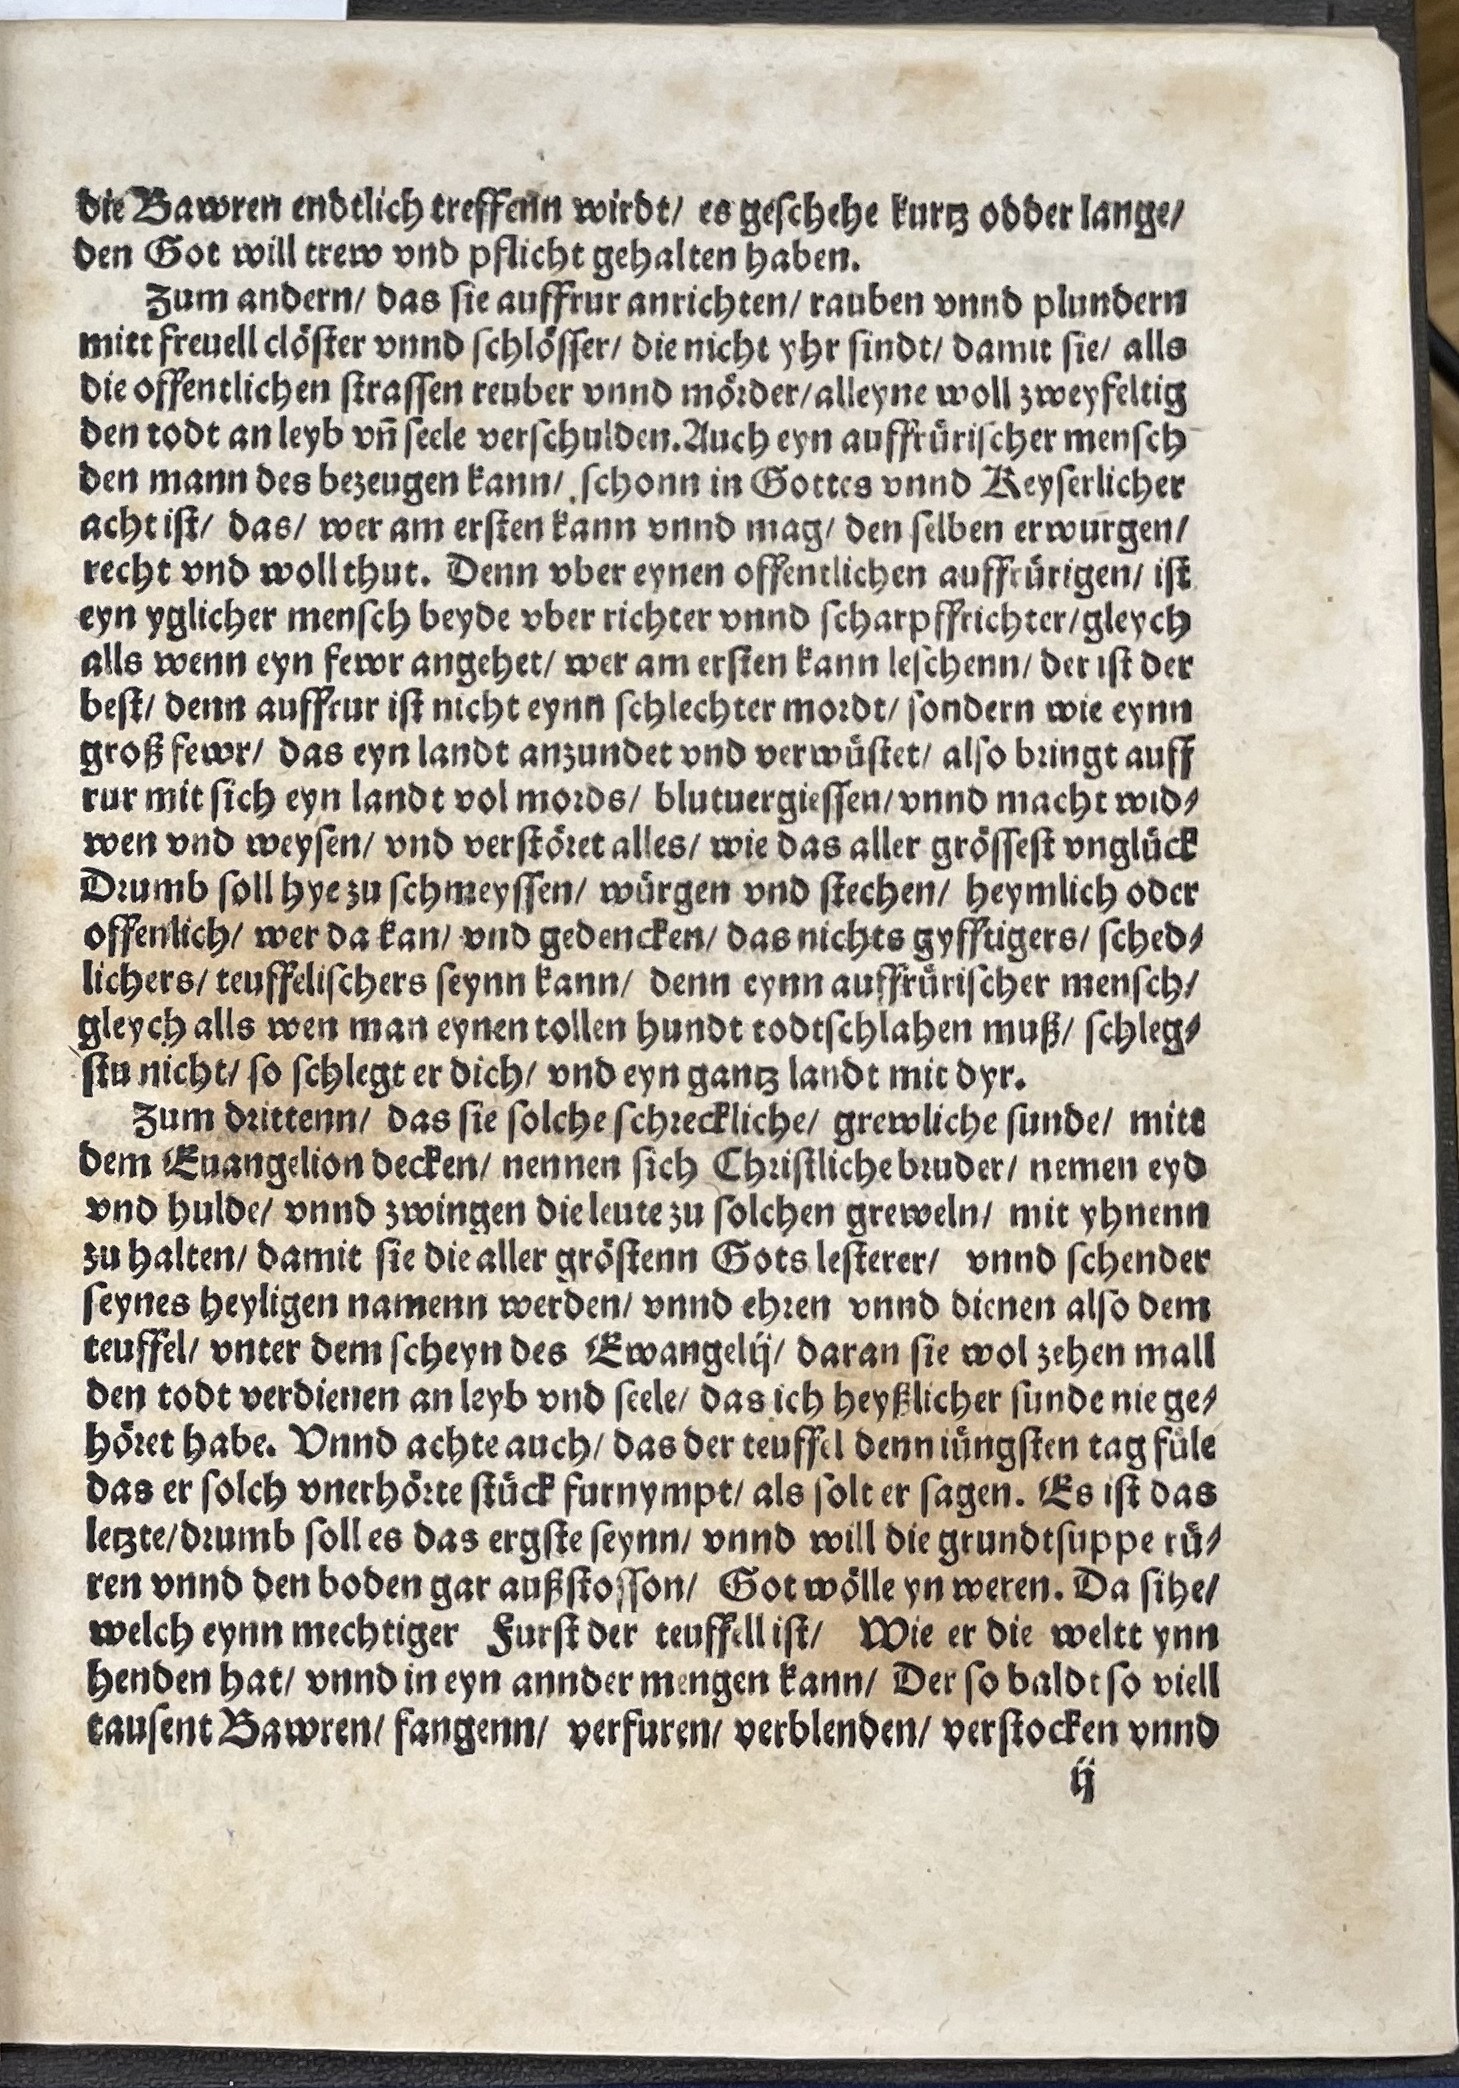 die Bawren endtlich treffenn wirdt/ es geschehe kurtz odder lange/
den Got will trew vnd pflicht gehalten haben.
Zum andern/ das sie auffrur anrichten/ rauben vnnd plundern
mitt freuell clöster vnnd schlösser/ die nicht yhr sindt/ damit sie/ alls
die offentlichen strassen reuber vnnd mörder/alleyne woll zweyfeltig
den todt an leyb vñ seele verschulden.Auch eyn auffrürischer mensch
den mann des bezeugen kann/ schonn in Gottes vnnd Keyserlicher
acht ist/ das/ wer am ersten kann vnnd mag/ den selben erwurgen/
recht vnd woll thut. Denn vber eynen offentlichen auffrürigen/ ist
eyn yglicher mensch beyde vber richter vnnd scharpffrichter/gleych
alls wenn eyn fewr angehet/ wer am ersten kann leschenn/ der ist der
best/ denn auffrur ist nicht eynn schlechter mordt/ sondern wie eynn
groß fewr/ das eyn landt anzundet vnd verwüstet/ also bringt auff
rur mit sich eyn landt vol mords/ blutuergiessen/vnnd macht wid⸗
wen vnd weysen/ vnd verstöret alles/ wie das aller grössest vnglück
Drumb soll hye zu schmeyssen/ würgen vnd stechen/ heymlich oder
offenlich/ wer da kan/ vnd gedencken/ das nichts gyfftigers/ sched⸗
lichers/ teuffelischers seynn kann/ denn eynn auffrürischer mensch/
gleych alls wen man eynen tollen hundt todtschlahen muß/ schleg⸗
stu nicht/ so schlegt er dich/ vnd eyn gantz landt mit dyr.
Zum drittenn/ das sie solche schreckliche/ grewliche sunde/ mitt
dem Euangelion decken/ nennen sich Christliche bruder/ nemen eyd
vnd hulde/ vnnd zwingen die leute zu solchen greweln/ mit yhnenn
zu halten/ damit sie die aller gröstenn Gots lesterer/ vnnd schender
seynes heyligen namenn werden/ vnnd ehren vnnd dienen also dem
teuffel/ vnter dem scheyn des Ewangelij/ daran sie wol zehen mall
den todt verdienen an leyb vnd seele/ das ich heyßlicher sunde nie ge⸗
höret habe. Vnnd achte auch/ das der teuffel denn iüngsten tag füle
das er solch vnerhörte stück furnympt/ als solt er sagen. Es ist das
letzte/drumb soll es das ergste seynn/ vnnd will die grundtsuppe rü⸗
ren vnnd den boden gar außstosson/ Got wölle yn weren. Da sihe/
welch eynn mechtiger Furst der teuffell ist/ Wie er die weltt ynn
henden hat/ vnnd in eyn annder mengen kann/ Der so baldt so viell
tausent Bawren/ fangenn/ verfuren/ verblenden/ verstocken vnnd
ij